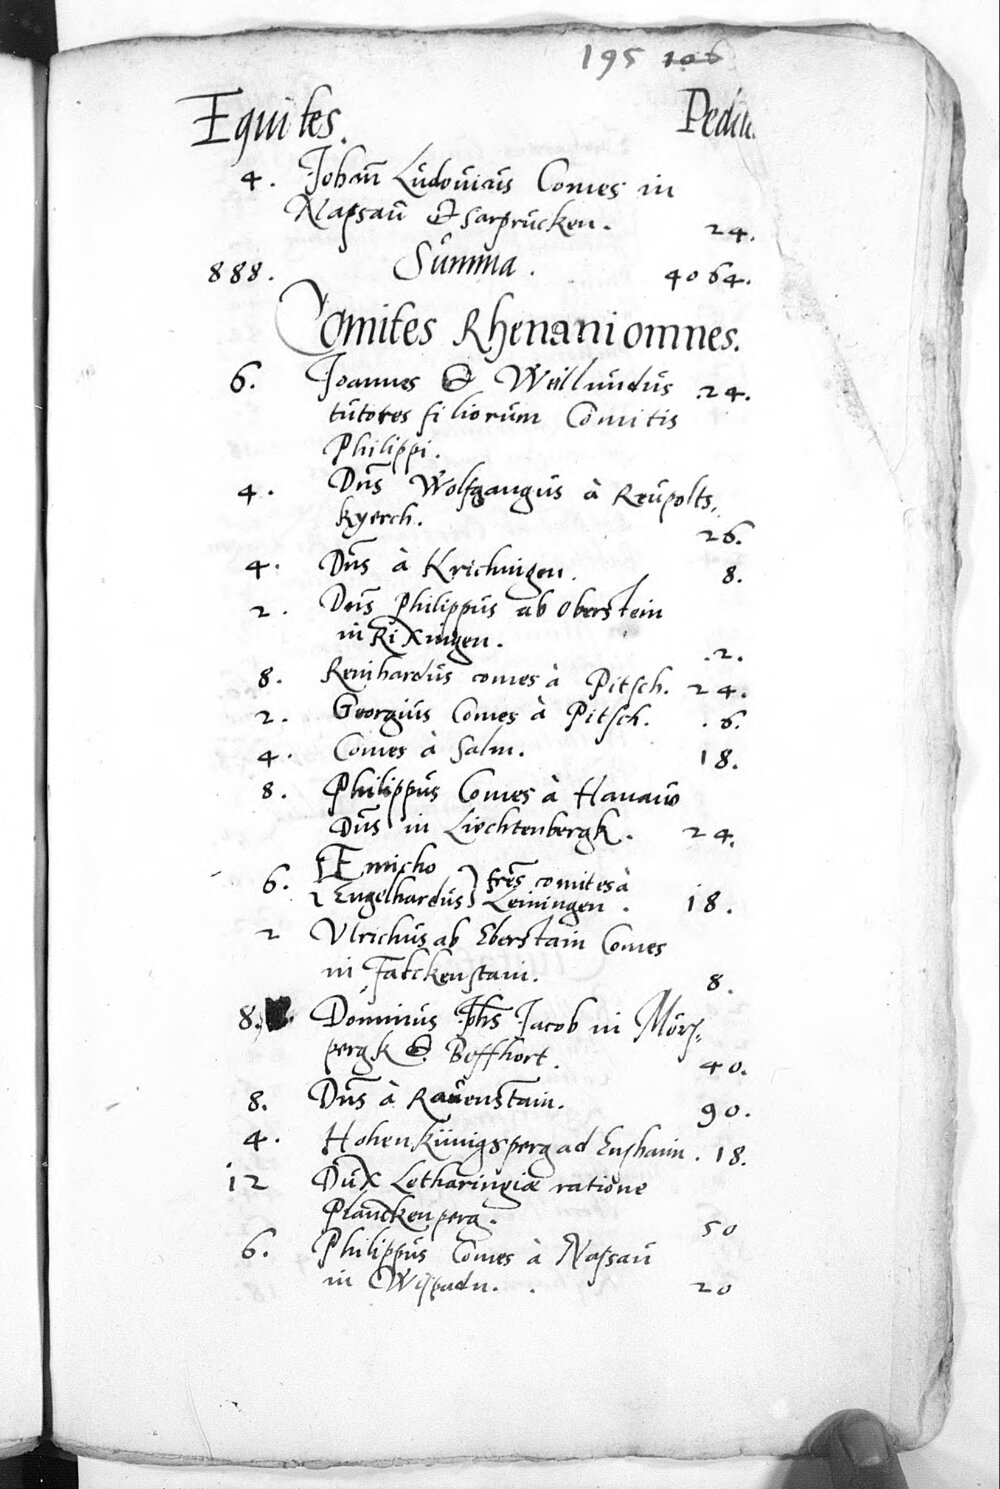 195 106
Equites. Pedit.
4. Johañ Ludovicus Comes in
Nassau & Sarprucken. 24.
888. Summa. 4064.
Comites Rhenani omnes.
6. Joannes & Weillundus 24.
tutores filiorum Comitis
Philippi.
4. Dñs Wolfgangus à Reupolts,
kyerch. 26.
4. Dñs à Krichingen. 8.
2. Dñs Philippus ab Oberstein
in Rixingen. .2.
8. Reinhardus comes à Pitsch. 24.
2. Georgius Comes à Pitsch. .6.
4. Comes à Salm. 18.
8. Philippus Comes à Hanaw
Dñs in Liechtenbergk. 24.
6. { Emicho } frẽs comites à
{ Engelhardus } Leiningen. 18.
2 Ulrichus ab Eberstain Comes
in Falckenstain. 8.
8. Dominus Jhs Jacob in Mörs=
pergk & Beffhort. 40.
8. Dñs à Rauenstain. 90.
4. Hohenkünigsperg ad Enshaim. 18.
12 Dux Lotharingiæ ratione
Planckenperg. 50
6. Philippus Comes à Nassau
in Wispadn. 20